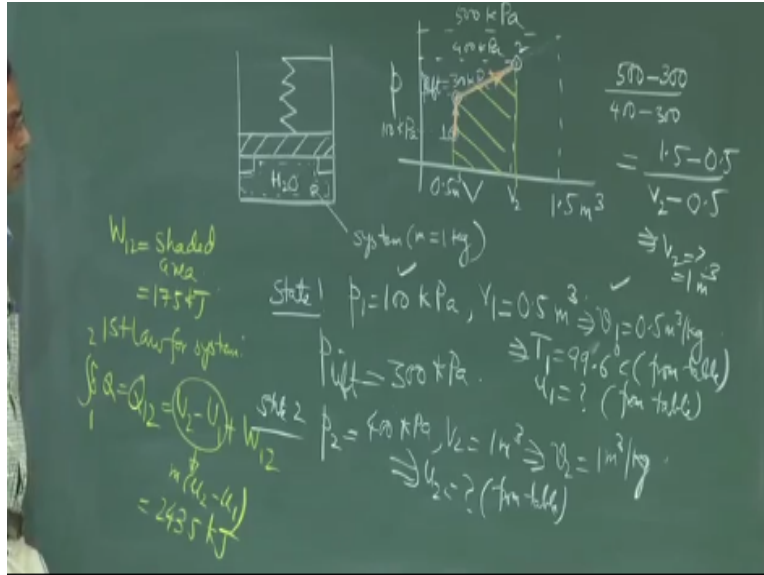 500 kPa
400 kPa
2
P
Plift=300kPa
100kPa
1
0.5m³
V
V₂
1.5 m³
H₂O
system (m=1kg)
500-300
400-300
= 1.5-0.5
V₂-0.5
⇒ V₂ = ?
= 1m³
W₁₂= shaded
area
=175kJ
1st Law for system:
∫₁² δQ = Q₁₂ = U₂-U₁ + W₁₂
m(u₂-u₁)
= 2435 kJ
State 1 p₁=100 kPa, V₁=0.5 m³ ⇒ v₁=0.5m³/kg
⇒ T₁=99.6°C (from table)
u₁=? (from table)
Plift = 300 kPa.
State 2 p₂ = 400 kPa, V₂=1m³ ⇒ v₂=1m³/kg
⇒ u₂=? (from table)